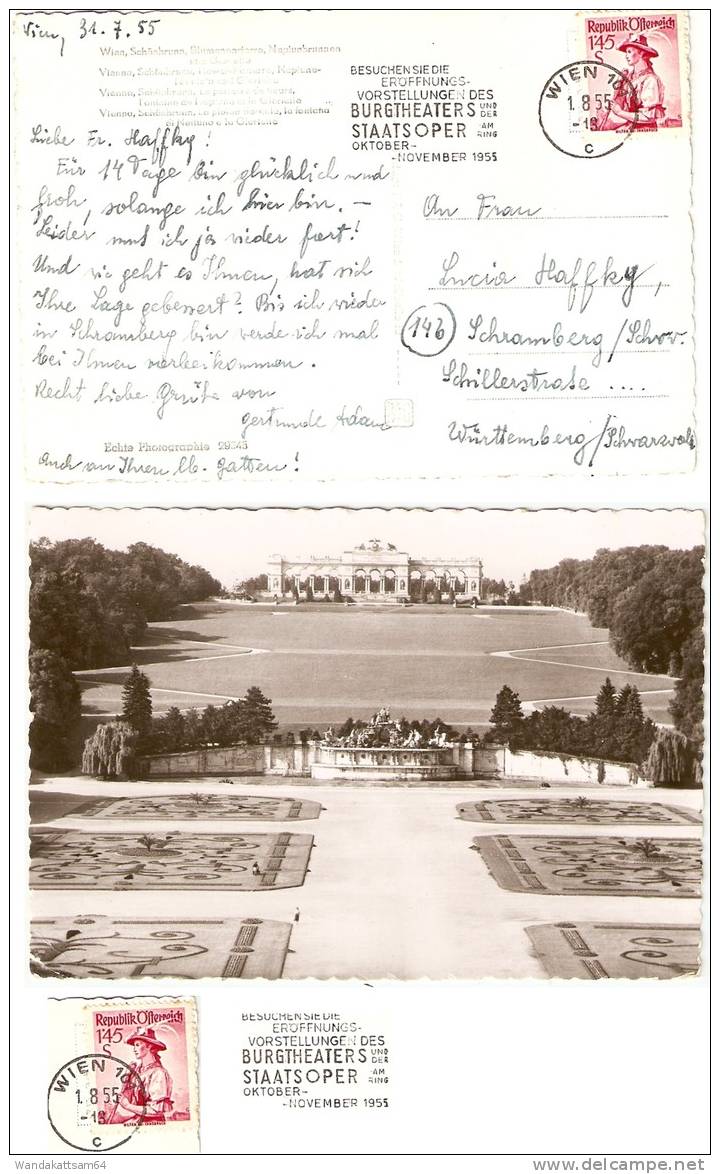 Wien, 31.7.55
Wien, Schönbrunn, Blumenparterre, Neptunbrunnen
und Gloriette
Vienna, Schönbrunn, Flower-Parterre, Neptune-
Vienne, Schönbrunn, Le parterre de fleurs,
Fontaine de Neptune et la Gloriette
Vienna, Schönbrunn, la fontana
di Nettuno e la Gloriette
Liebe Fr. Haffky!
Für 14 Tage bin glücklich und
froh, solange ich hier bin. —
Leider muß ich ja wieder fort!
Und wie geht es Ihnen, hat sich
Ihre Lage gebessert? Bis ich wieder
in Schramberg bin werde ich mal
bei Ihnen vorbeikommen.
Recht liebe Grüße von
Gertrude Adam
Echte Photographie
Auch an Ihren lb. Gatten!
BESUCHEN SIE DIE
ERÖFFNUNGS-
VORSTELLUNGEN DES
BURGTHEATERS UND DER
STAATSOPER AM RING
OKTOBER-
-NOVEMBER 1955
WIEN 10
1.8.55
-18
c
Republik Österreich
1'45
S
An Frau
Lucia Haffky,
(14b) Schramberg/Schw.
Schillerstraße ....
Württemberg/Schwarzwald
Republik Österreich
1'45
S
WIEN 10
1.8.55
-18
c
BESUCHEN SIE DIE
ERÖFFNUNGS-
VORSTELLUNGEN DES
BURGTHEATERS UND DER
STAATSOPER AM RING
OKTOBER-
-NOVEMBER 1955
Wandakattsam64